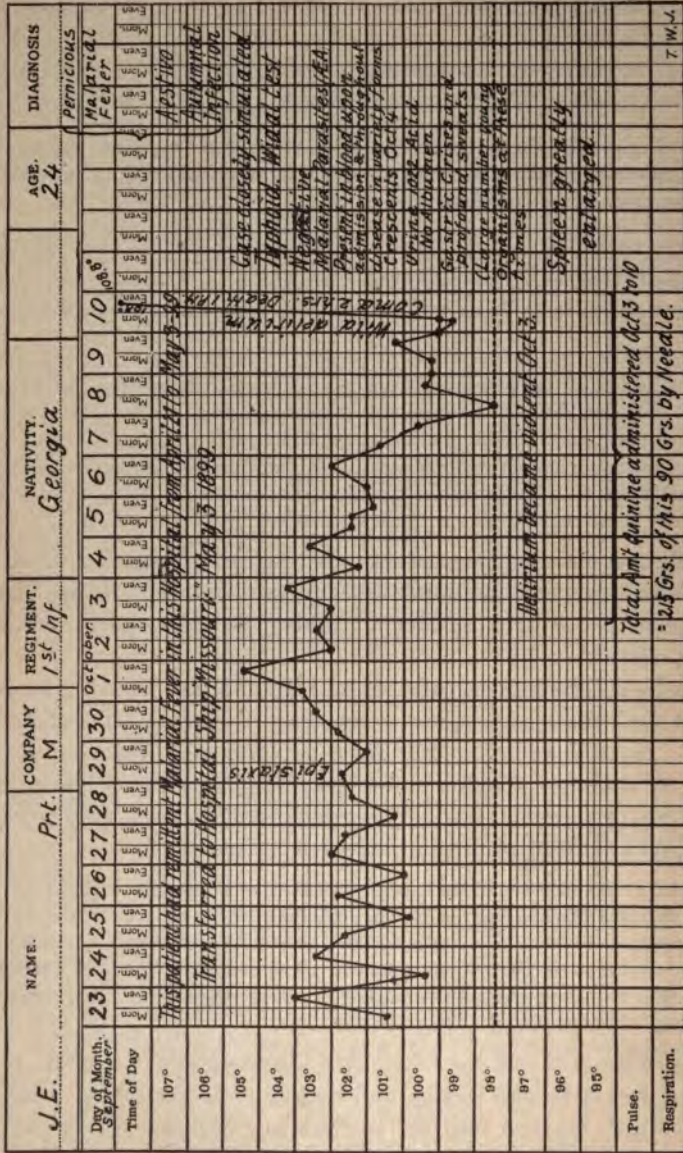 NAME. COMPANY REGIMENT. NATIVITY. AGE. DIAGNOSIS
J.E. Prt. M 1st Inf. Georgia 24 Pernicious
Malarial
Fever
Day of Month. 23 24 25 26 27 28 29 30 1 2 3 4 5 6 7 8 9 10
September October
Time of Day Morn. Even Morn. Even Morn. Even Morn. Even Morn. Even Morn. Even Morn. Even Morn. Even Morn. Even Morn. Even Morn. Even Morn. Even Morn. Even Morn. Even Morn. Even Morn. Even Morn. Even Morn. Even
108.8°
107°
106°
105°
104°
103°
102°
101°
100°
99°
98°
97°
96°
95°
This patient had remittent Malarial Fever in this Hospital from April 21 to May 3-99
Transferred to Hospital Ship "Missouri" May 3 1899.
Epistaxis
Wild delirium
Coma 2 hrs. Death 1 P.M.
Aestivo
Autumnal
Infection
Case closely simulated
Typhoid. Widal test
Negative
Malarial Parasites
Present in blood upon
admission & throughout
disease in variety forms
Crescents Oct 4
Urine 1022 Acid
No Albumen
Gastric Crises and
profound sweats
(Large number young
Organisms at these
times
Spleen greatly
enlarged.
Delirium became violent Oct 3.
Pulse.
Total Am't Quinine administered Oct 3 to 10
Respiration.
= 215 Grs. of this 90 Grs. by Needle.
T. W. J.